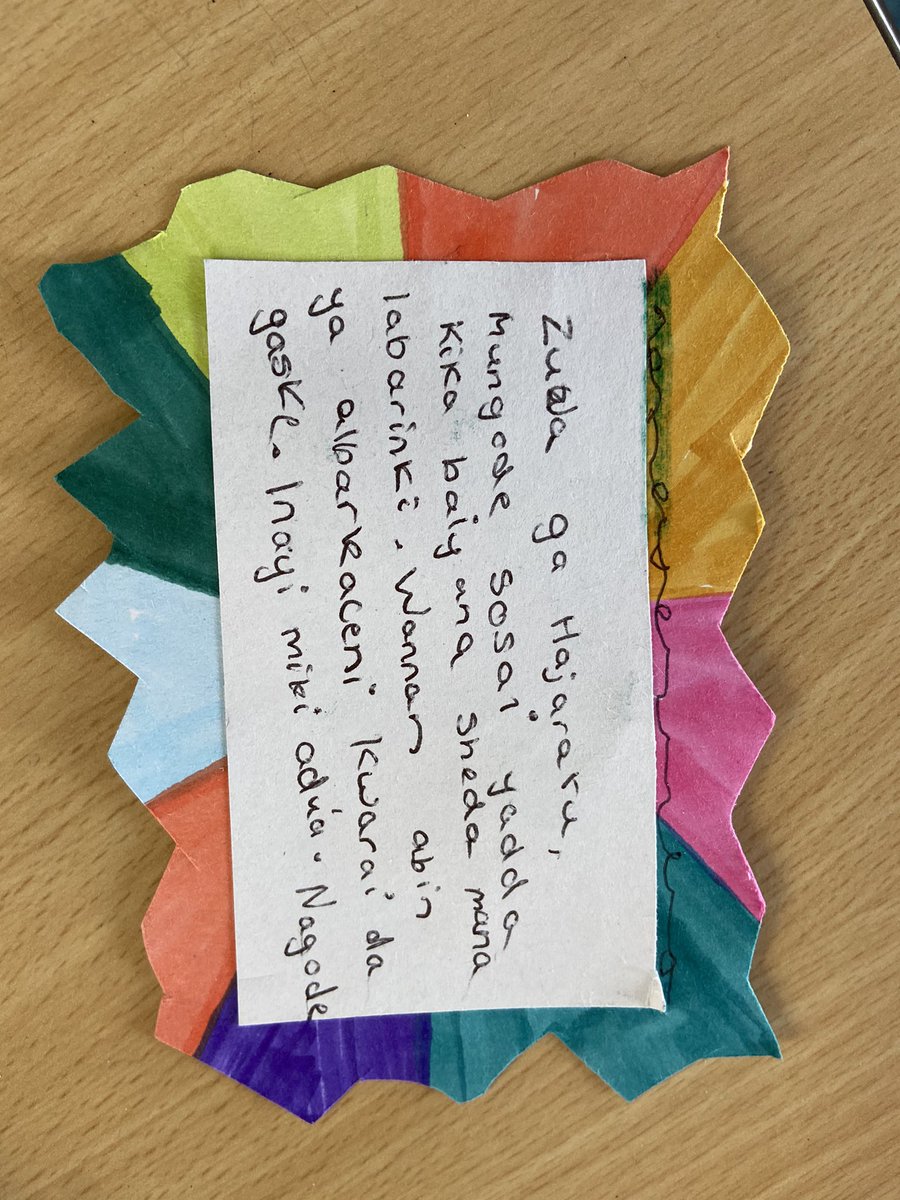 Zuwa ga Hajararu,
Mungode sosai yadda
Kika baiyana sheda mana
labarinki. Wannan abin
ya albarkaceni kwarai da
gaske. Inayi miki adúa. Nagode